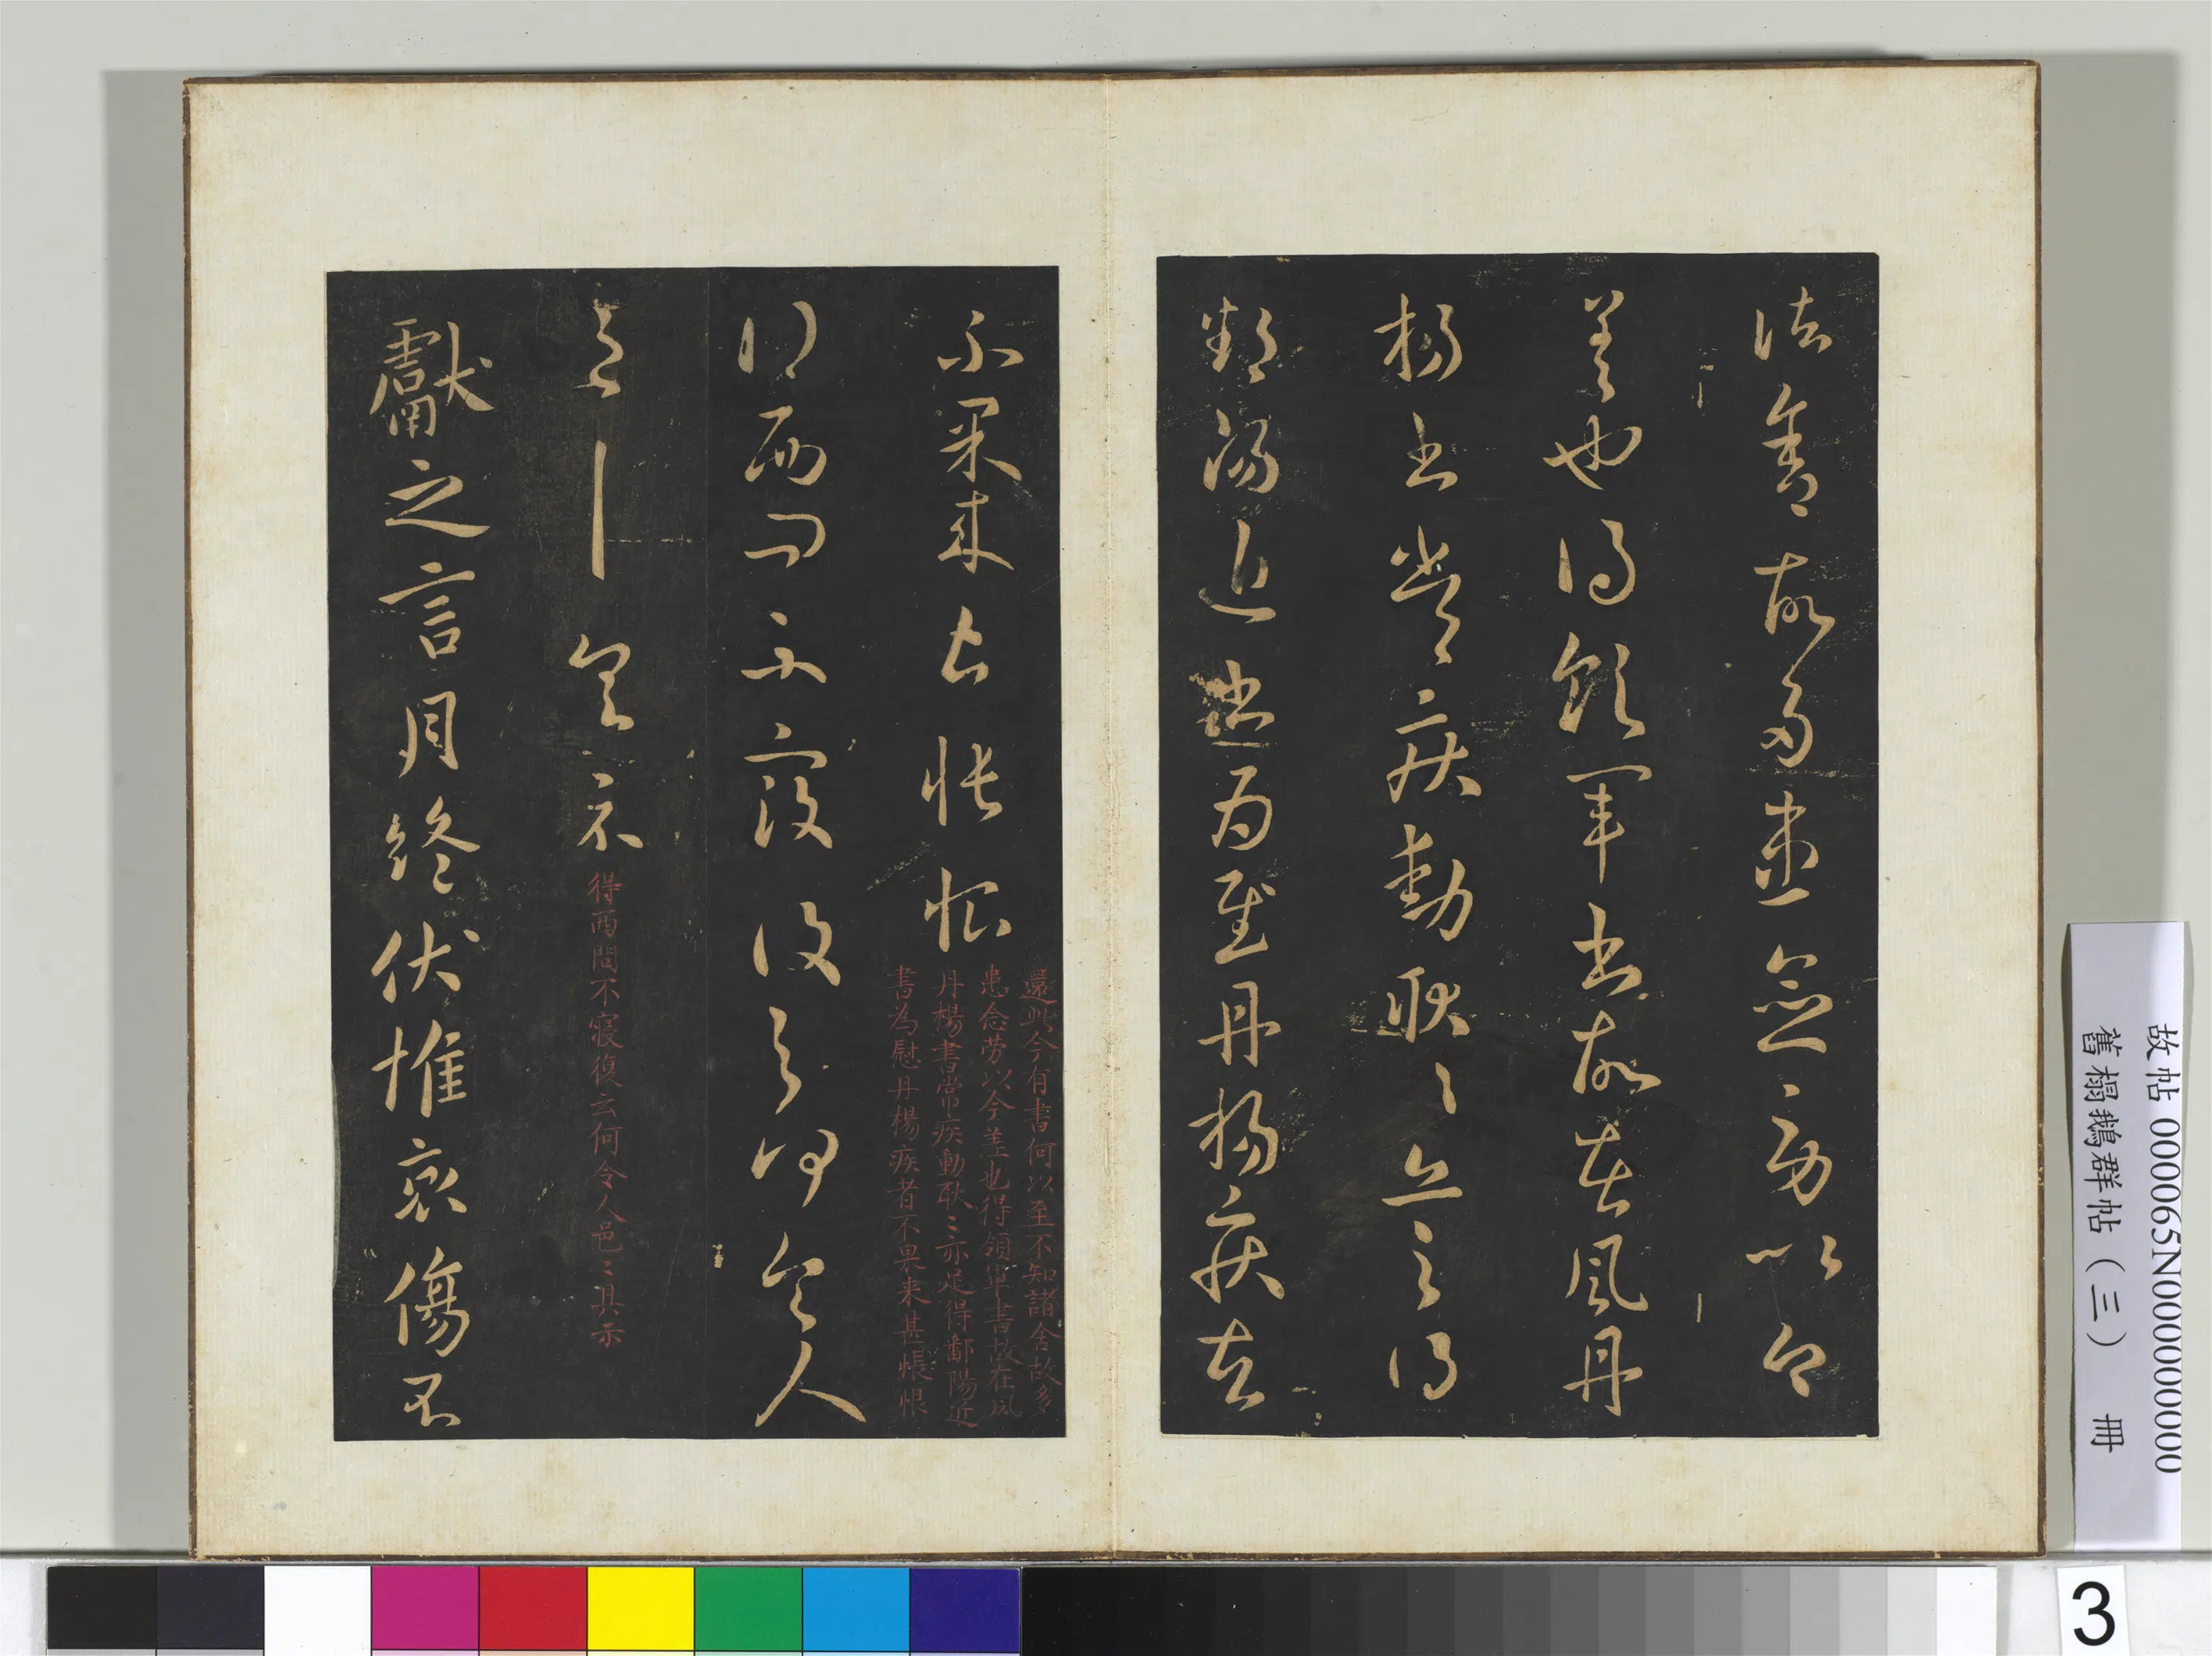 諸舍故多患念勞以今
差也得領軍書故在風丹
楊書常疾動耿〻亦足得
鄱陽近書為慰丹楊疾者
不果来甚悵恨
還此今有書何以至不知諸舍故多
患念劳以今差也得領軍書故在風
丹楊書常疾動耿〻亦足得鄱陽近
書為慰丹楊疾者不果来甚悵恨
得西問不寢復云何令人
邑〻具示
得西問不寢復云何令人邑〻具示
獻之言月終伏惟哀傷不
故帖 000065N000000000
舊榻鵝群帖（三） 冊
3